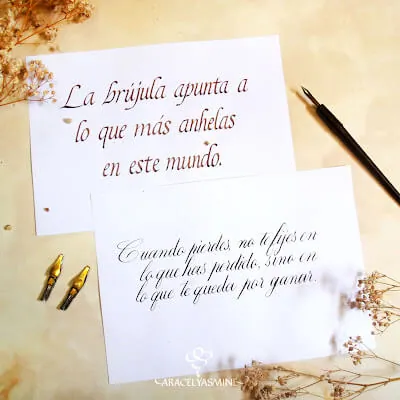 La brújula apunta a
lo que más anhelas
en este mundo.
Cuando pierdes, no te fijes en
lo que has perdido, sino en
lo que te queda por ganar.
ARACELYASMINE